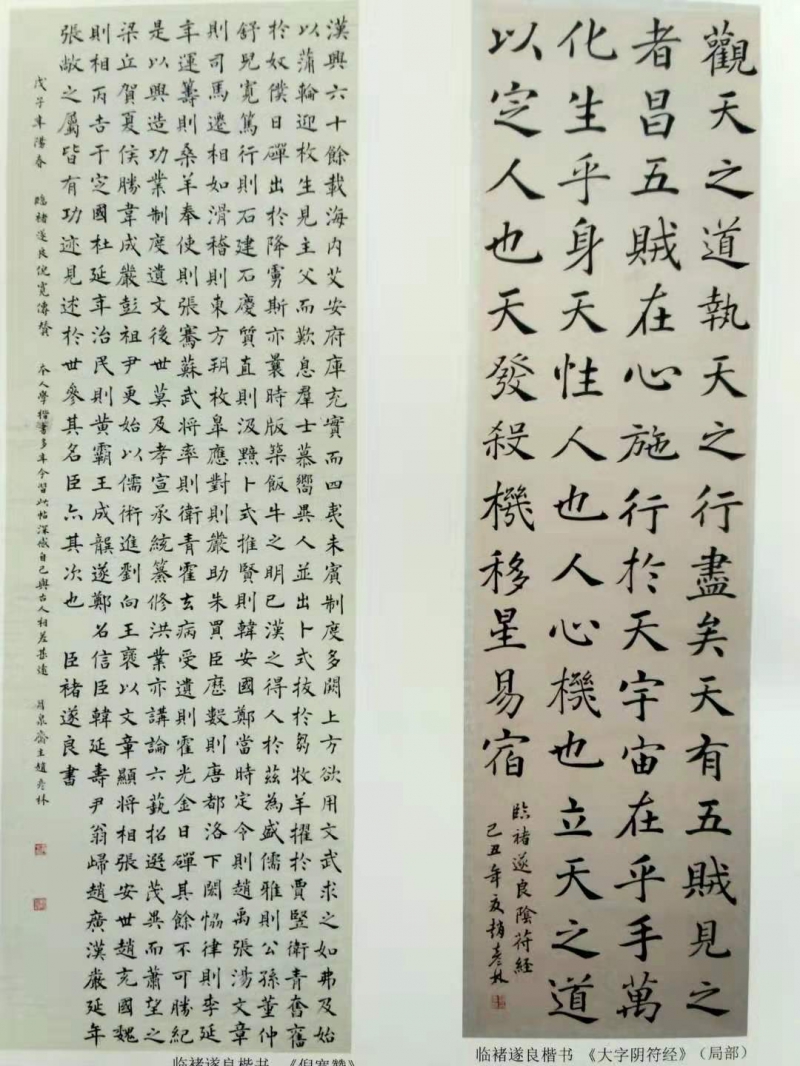 漢興六十餘載海内艾安府庫充實而四夷未賓制度多闕上方欲用文武求之如弗及始
以蒲輪迎枚生見主父而歎息羣士慕嚮異人並出卜式拔於芻牧羊擢於賈竪衛青奮
於奴僕日磾出於降虜斯亦曩時版築飯牛之明已漢之得人於茲為盛儒雅則公孫董仲
舒兒寬篤行則石建石慶質直則汲黯卜式推賢則韓安國鄭當時定令則趙禹張湯文章
則司馬遷相如滑稽則東方朔枚皋應對則嚴助朱買臣歷數則唐都洛下閎恊律則李延
年運籌則桑羊奉使則張騫蘇武將率則衛青霍去病受遺則霍光金日磾其餘不可勝紀
是以興造功業制度遺文後世莫及孝宣承統纂修洪業亦講論六藝招選茂異而蕭望之
梁立賀夏侯勝韋成嚴彭祖尹更始以儒術進劉向王襃以文章顯將相張安世趙充國魏
則相丙吉于定國杜延年治民則黄霸王成龔遂鄭名信臣韓延壽尹翁歸趙廣漢嚴延年
張敞之屬皆有功迹見述於世參其名臣亦其次也 臣褚遂良書
戊子年陽春 臨褚遂良倪寬傳贊 本人學楷書多年今習此帖深感自己與古人相差甚遠 泉齋主趙彦林
临褚遂良楷书 《倪宽赞》
觀天之道執天之行盡矣天有五賊見之
者昌五賊在心施行於天宇宙在乎手萬
化生乎身天性人也人心機也立天之道
以定人也天發殺機移星易宿
臨褚遂良陰符經
己丑年夏趙彦林
临褚遂良楷书 《大字阴符经》（局部）